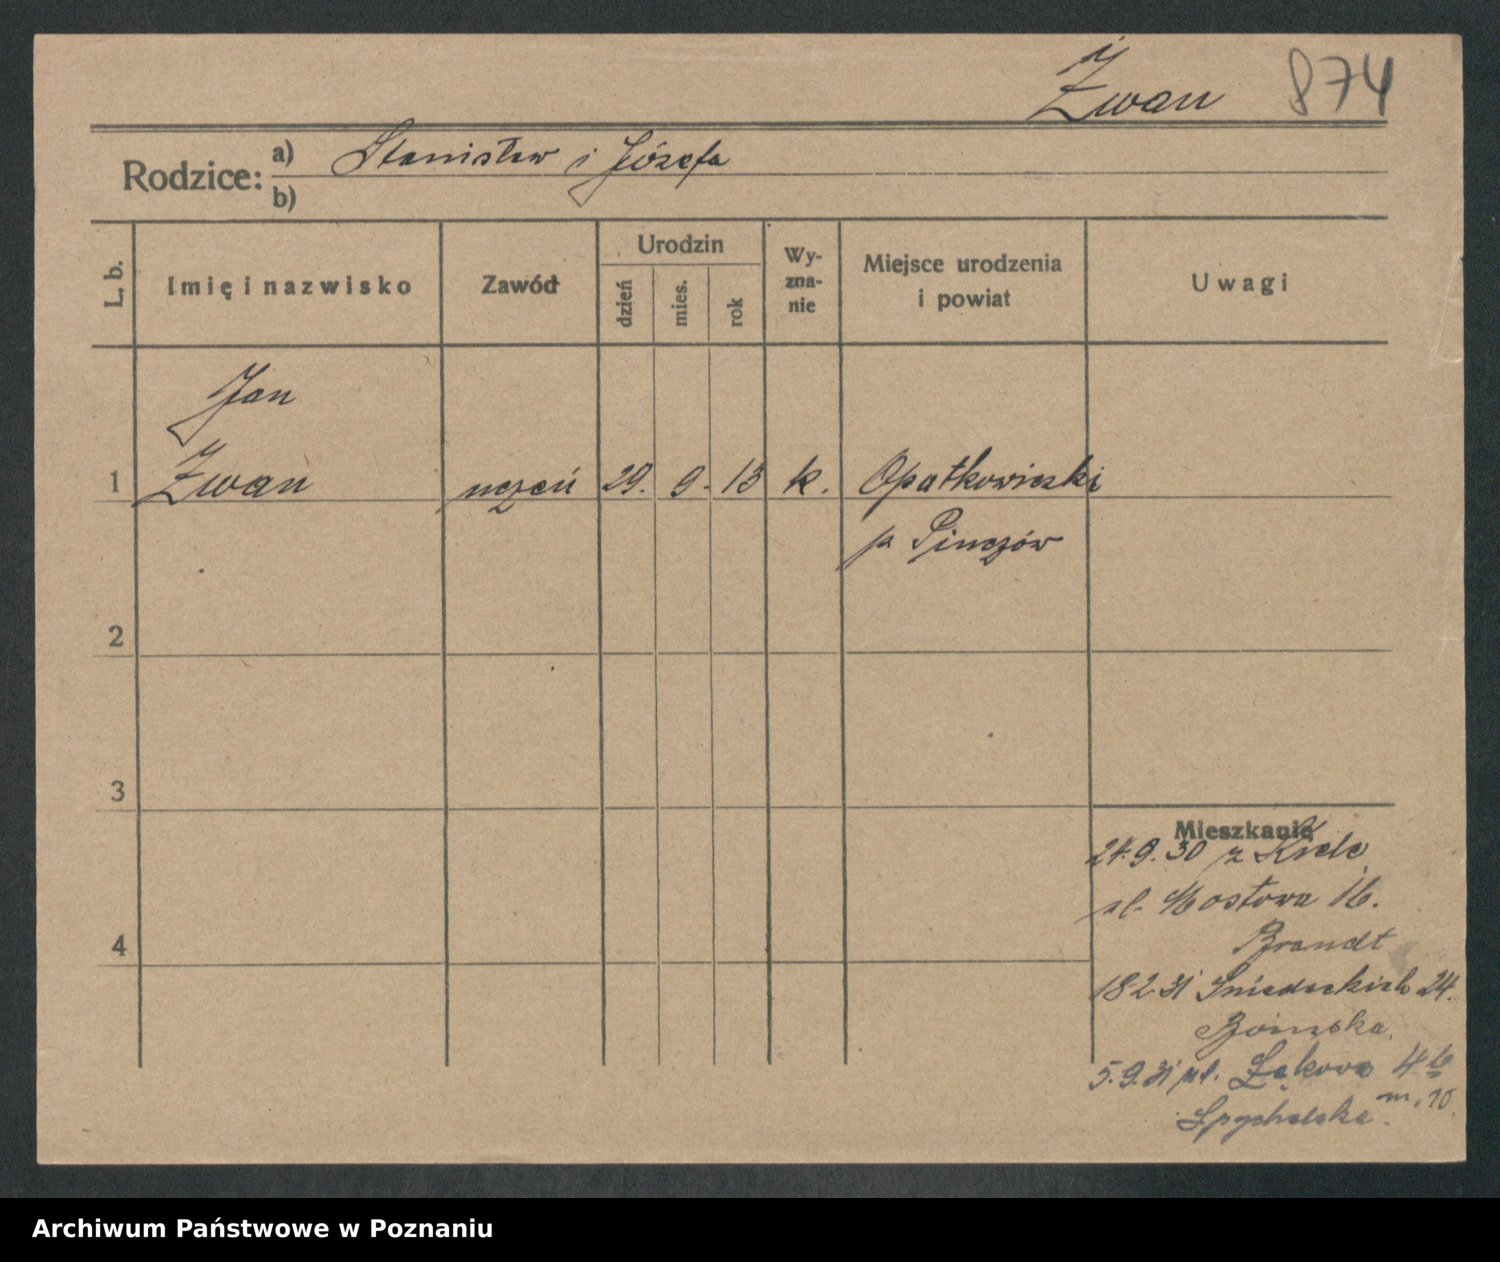 Żwan 874
Rodzice: a) Stanisław i Józefa
b)
L. b. Imię i nazwisko Zawód Urodzin dzień mies. rok Wyznanie Miejsce urodzenia i powiat Uwagi
Jan
1 Żwan uczeń 29. 9. 13 k. Opatkowiczki
p Pinczów
2
3
Mieszkanie
24.9.30 z Kielc
ul. Mostowa 16.
4
Brandt
18 2 31 Śniadeckich 24.
5.9.31 ul. Łąkowa 4b
m. 10
Spychalska.
Archiwum Państwowe w Poznaniu